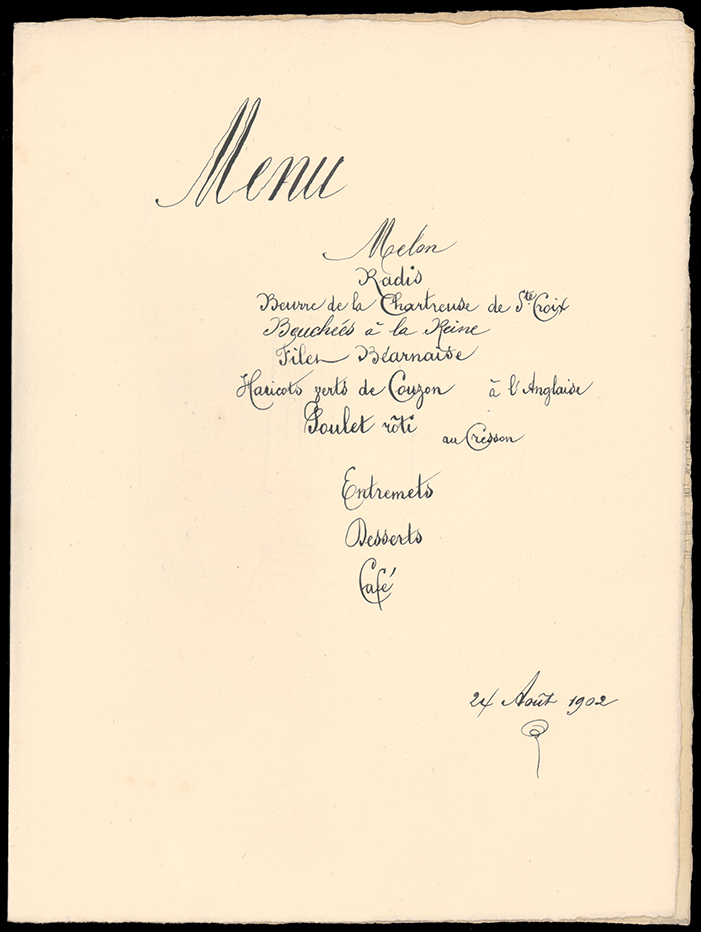 Menu
Melon
Radis
Beurre de la Chartreuse de Ste Croix
Bouchées à la Reine
Filet Béarnaise
Haricots verts de Couzon à l'Anglaise
Poulet rôti au Cresson
Entremets
Desserts
Café
24 Août 1902